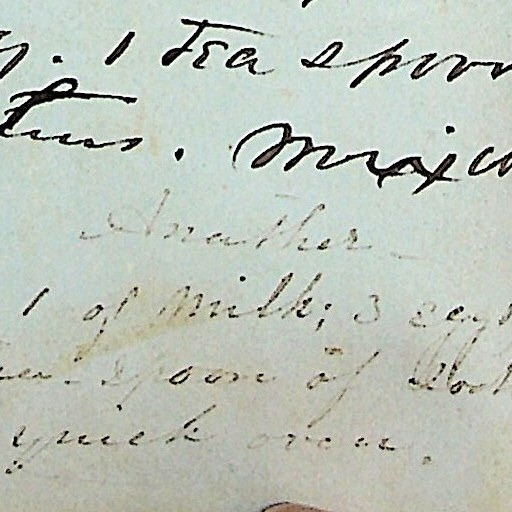 . 1 Tea spoon
. Mix
Another
1 of Milk; 3 eggs
spoon of
quick oven.